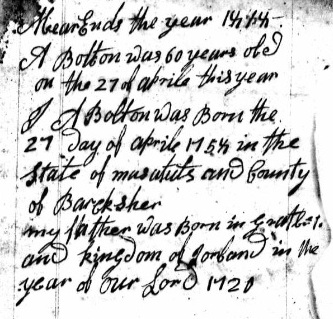 hear Ends the year 1414
A Bolton was 60 years old
on the 27 of aprile this year
I A Bolton was Born the
27 day of aprile 1754 in the
state of masututs and County
of Barcksher
my father was Born in
and kingdom of in the
year of our Lord 1720